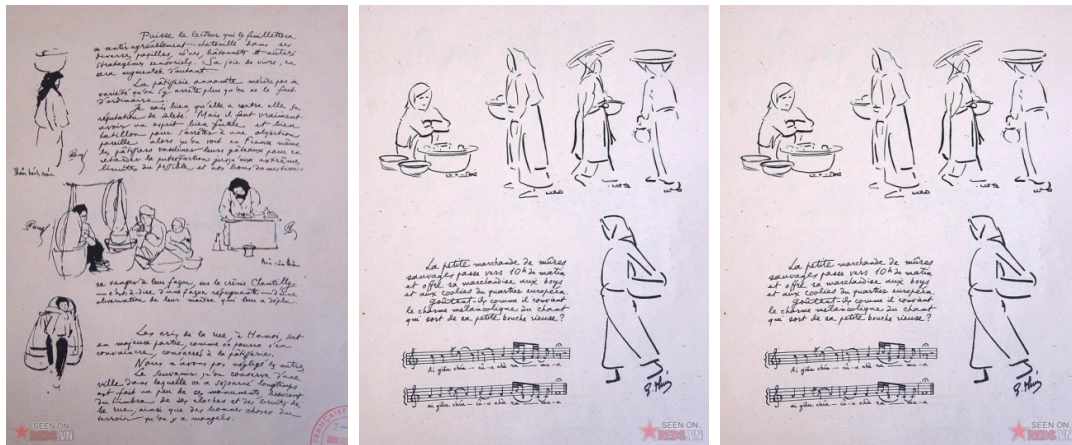 Puisse le lecteur qui le feuillettera
se sentir agréablement chatouillé dans ses
diverses papilles, cônes, bâtonnets et autres
stratagèmes sensoriels. Sa joie de vivre, en
sera augmentée d'autant.
La pâtisserie annamite mérite par sa
variété qu'on s'y arrête plus qu'on ne le fait
d'ordinaire.
Je sais bien qu'elle a contre elle sa
réputation de saleté. Mais il faut vraiment
avoir un esprit bien futile et bien
tatillon pour s'arrêter à une objection
pareille alors qu'on voit en France même
les pâtissiers vaseliner leurs gâteaux pour en
retarder la putréfaction jusqu'aux extrêmes
limites du possible et nos bonnes du
se venger à leur façon, sur la crème Chantilly
c'est-à-dire d'une façon répugnante d'une
observation de leur maître qui leur a déplu.
Les cris de la rue, à Hanoi, sont
en majeure partie, comme on pourra s'en
convaincre, consacrés à la pâtisserie.
Nous n'avons pas négligé les autres.
Le souvenir qu'on conserve d'une
ville dans laquelle on a séjourné longtemps
est fait un peu de ses monuments, beaucoup
du timbre de ses cloches et des bruits de
la rue, ainsi que des bonnes choses du
terroir qu'on y a mangées.
FRANÇAISE
SEEN ON
REDS.VN
La petite marchande de mûres
sauvages passe vers 10h du matin
et offre sa marchandise aux boys
et aux coolies du quartier européen
goûtent-ils comme il convient
le charme mélancolique du chant
qui sort de sa petite bouche rieuse ?
SEEN ON
REDS.VN
La petite marchande de mûres
sauvages passe vers 10h du matin
et offre sa marchandise aux boys
et aux coolies du quartier européen
goûtent-ils comme il convient
le charme mélancolique du chant
qui sort de sa petite bouche rieuse ?
SEEN ON
REDS.VN